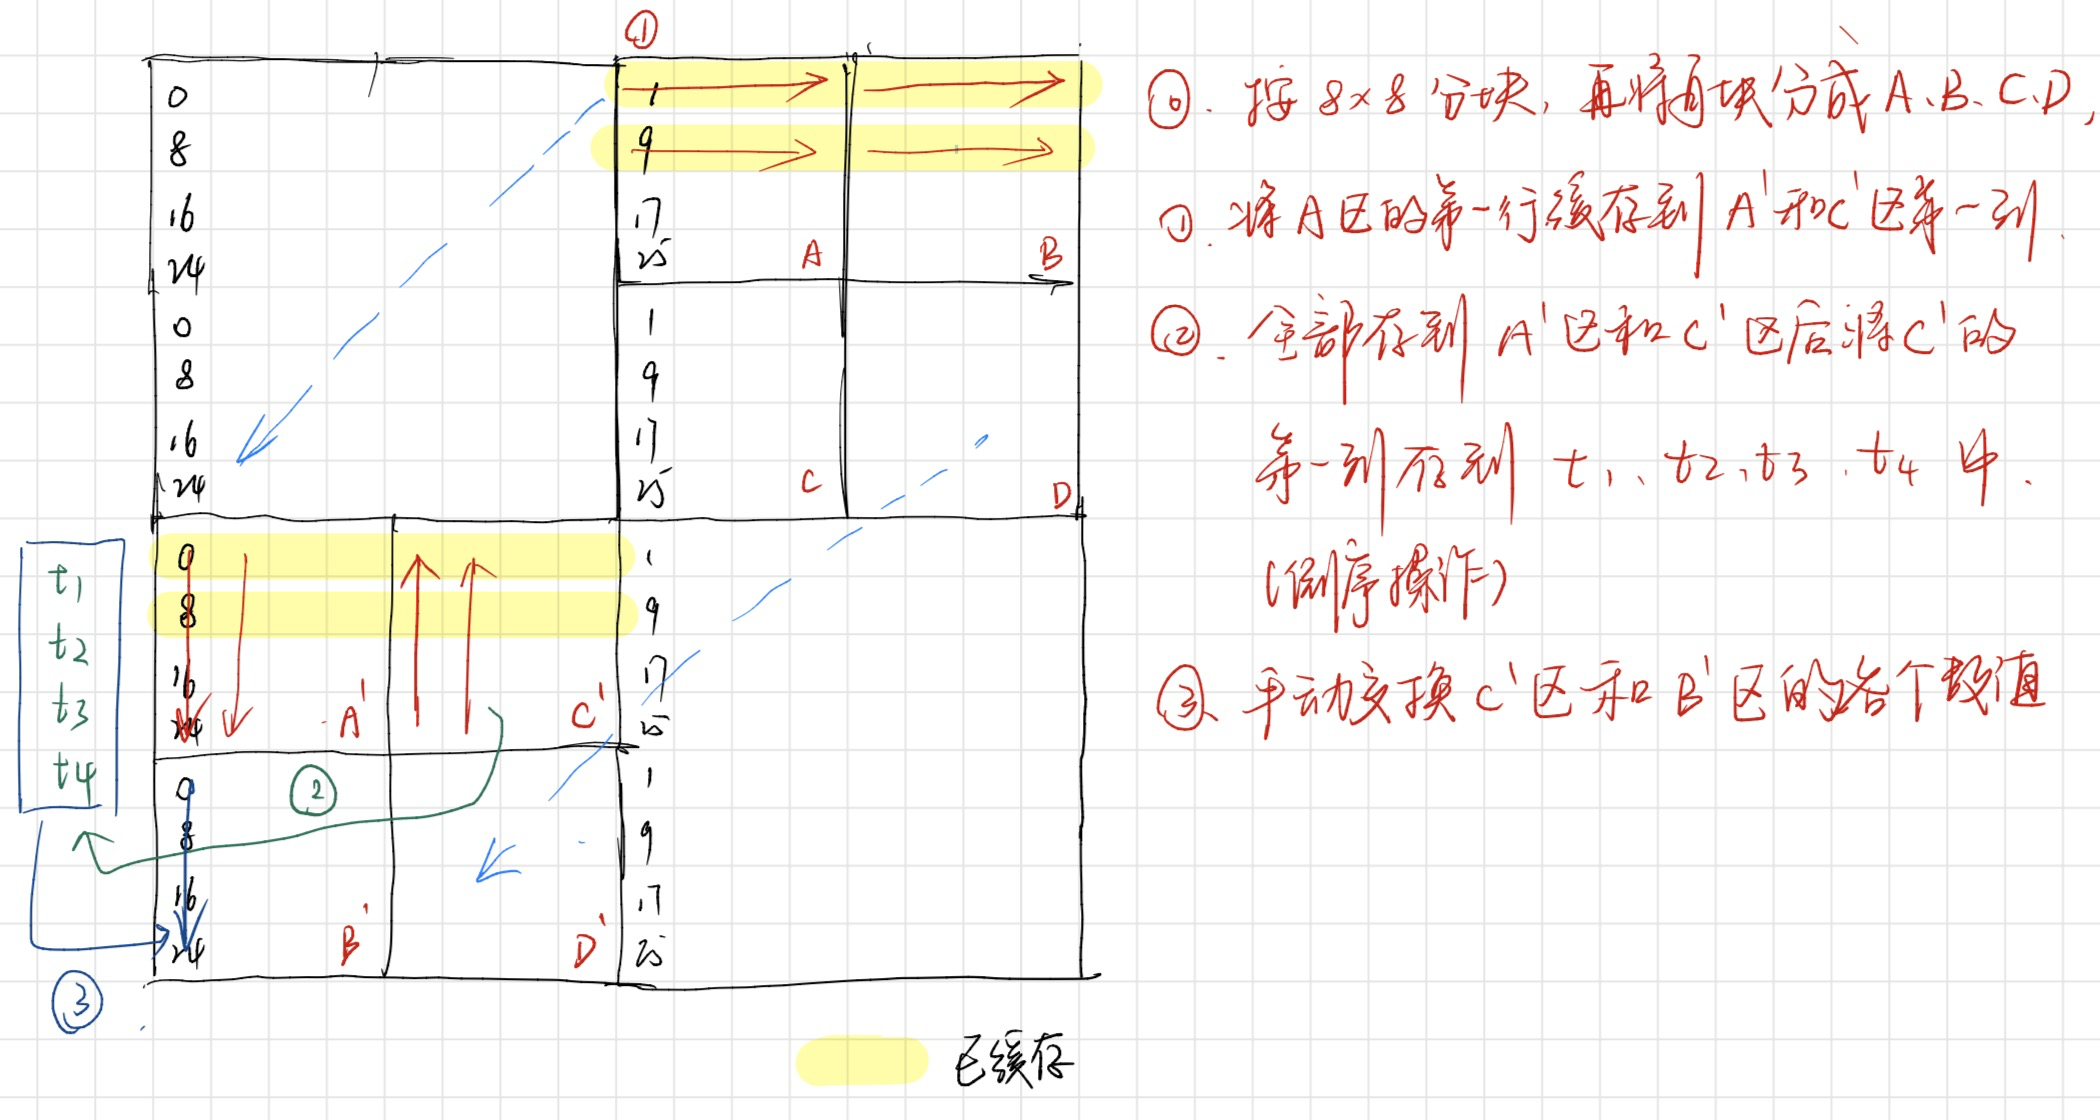 ①
0
8
16
24
0
8
16
24
1
9
17
25
A
B
1
9
17
25
C
D
0
8
16
24
A'
C'
1
9
17
25
0
8
16
24
B'
D'
1
9
17
25
t1
t2
t3
t4
②
③
已缓存
⓪. 按 8×8 分块, 再将每块分成 A、B、C、D,
①. 将 A 区的第一行缓存到 A'和C'区第一列.
②. 全部存到 A'区和 C'区后将 C'的
第一列存到 t1、t2、t3、t4 中.
(倒序操作)
③、手动交换 C'区和 B'区的各个数值